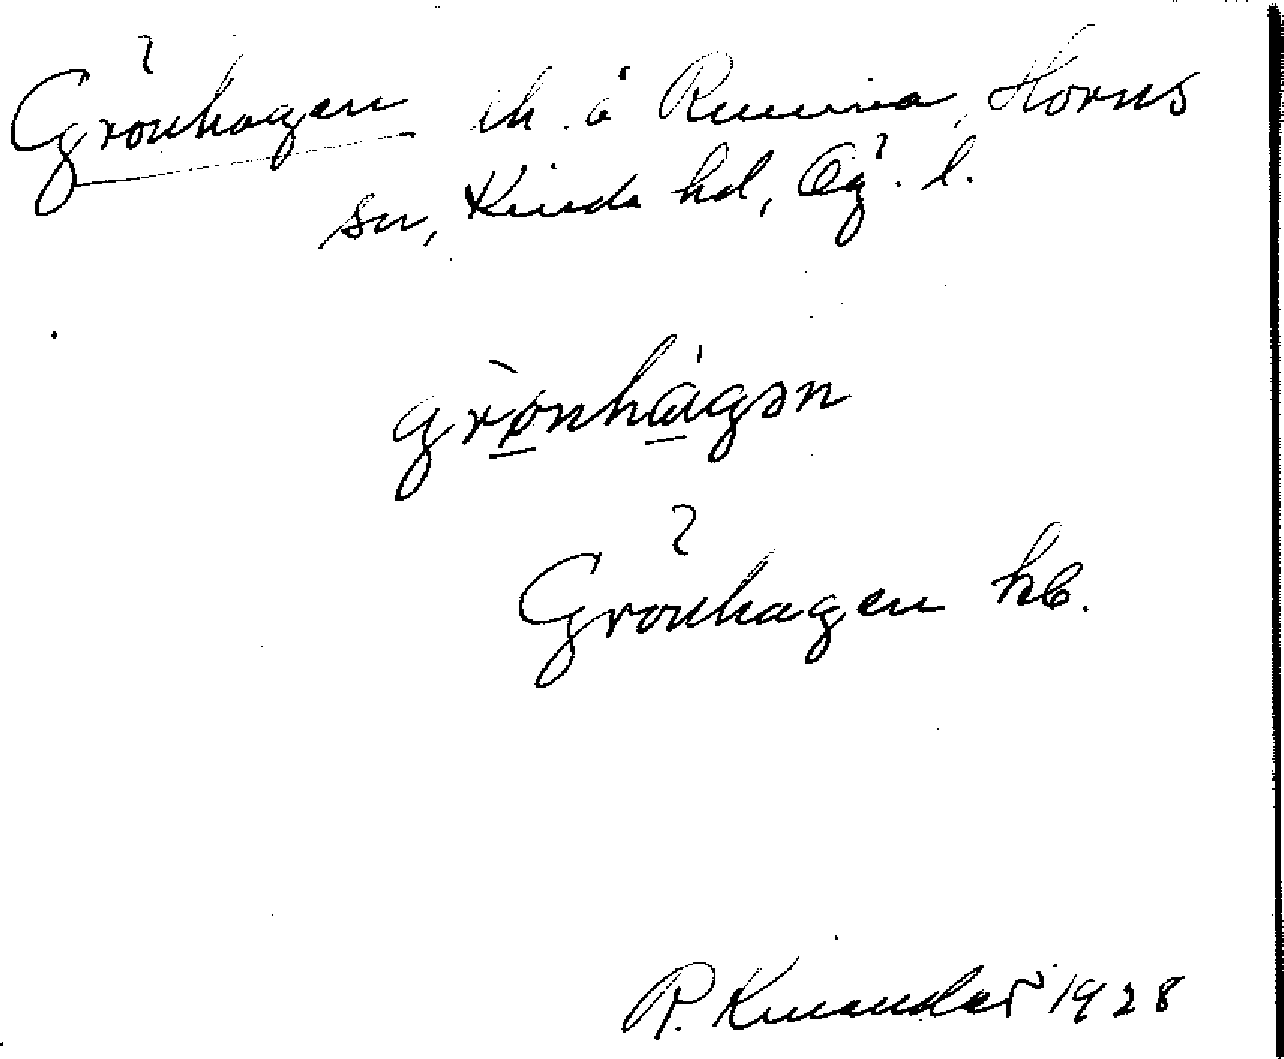 Grönhagen th. å Rumma, Horns
sn, Kinda hd, Ög. l.
grònhágən
Grönhagen hb.
R. Kinander 1928